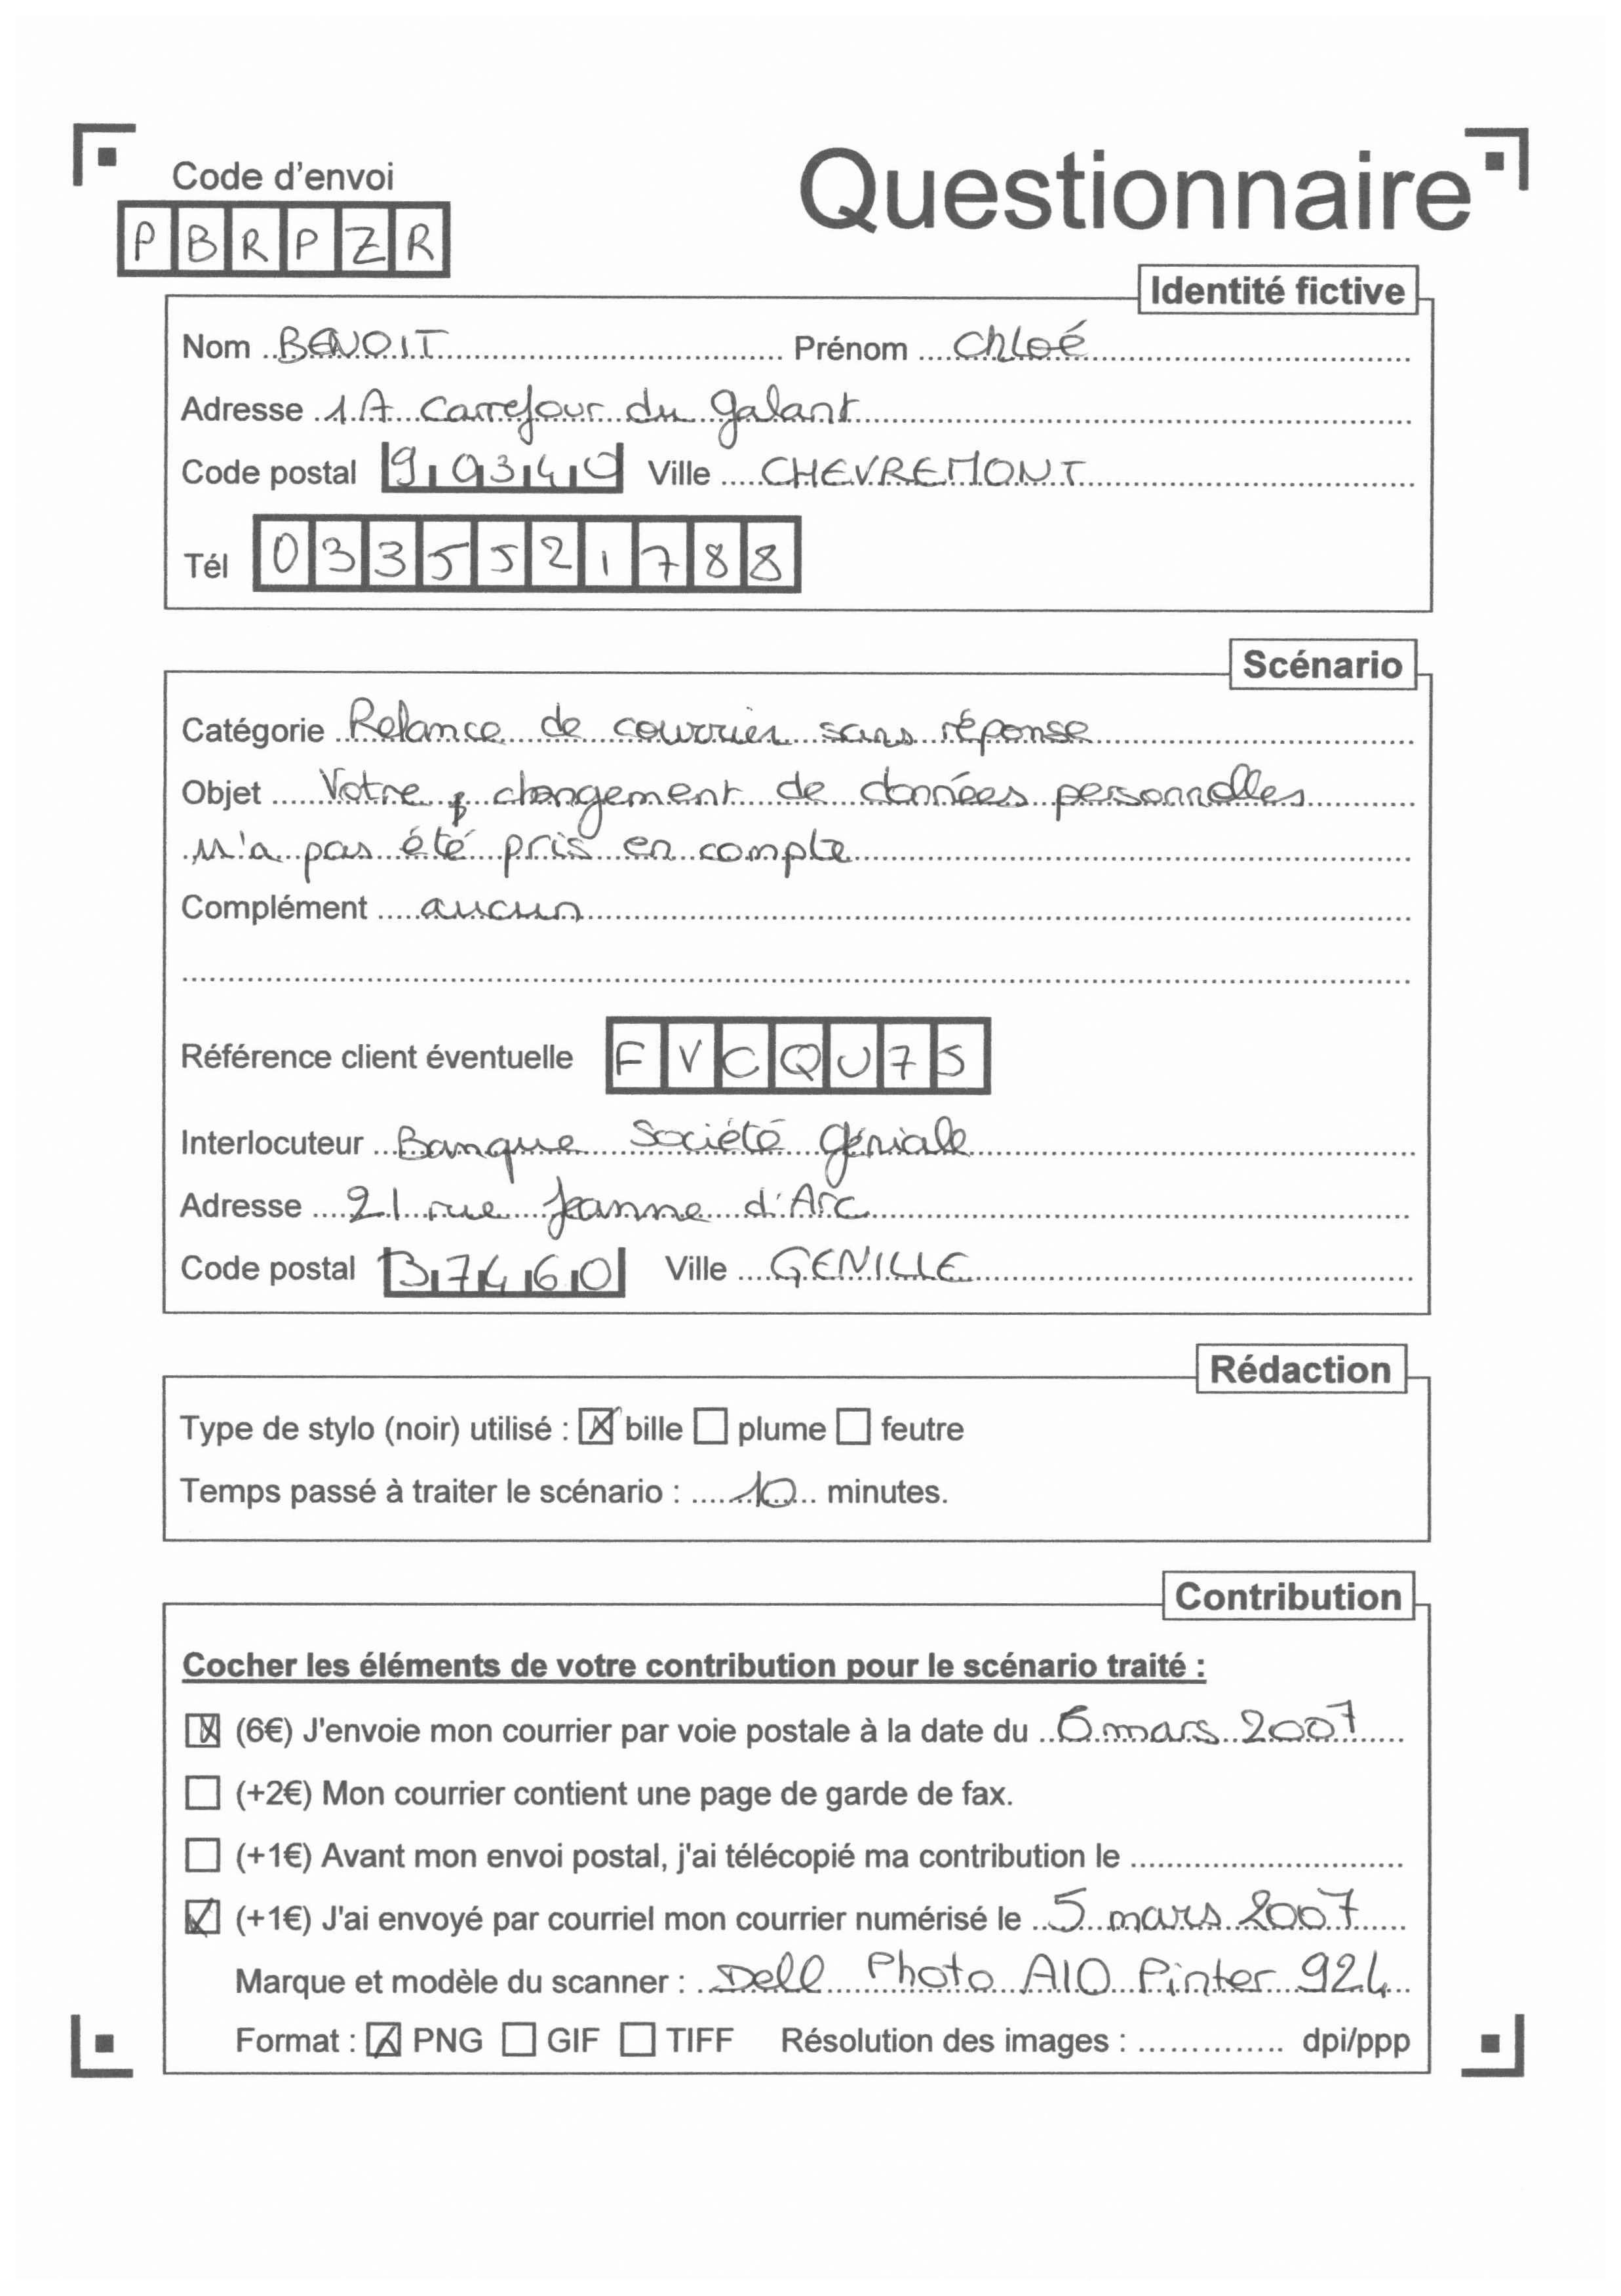 Code d'envoi
Questionnaire
PBRPZR
Identité fictive
Nom BENOIT Prénom Chloé
Adresse 1A Carrefour du galant
Code postal 90340 Ville CHEVREMONT
Tél 0335521788
Scénario
Catégorie Relance de courrier sans réponse
Objet Votre changement de données personnelles
n'a pas été pris en compte
Complément aucun
Référence client éventuelle FVCQU75
Interlocuteur Banque Société Géniale
Adresse 21 rue Jeanne d'Arc
Code postal 37460 Ville GENILLE
Rédaction
Type de stylo (noir) utilisé : ☒ bille ☐ plume ☐ feutre
Temps passé à traiter le scénario : 10 minutes.
Contribution
Cocher les éléments de votre contribution pour le scénario traité :
☒ (6€) J'envoie mon courrier par voie postale à la date du 6 mars 2007
☐ (+2€) Mon courrier contient une page de garde de fax.
☐ (+1€) Avant mon envoi postal, j'ai télécopié ma contribution le
☒ (+1€) J'ai envoyé par courriel mon courrier numérisé le 5 mars 2007
Marque et modèle du scanner : Dell Photo AIO Pinter 924
Format : ☒ PNG ☐ GIF ☐ TIFF Résolution des images : dpi/ppp